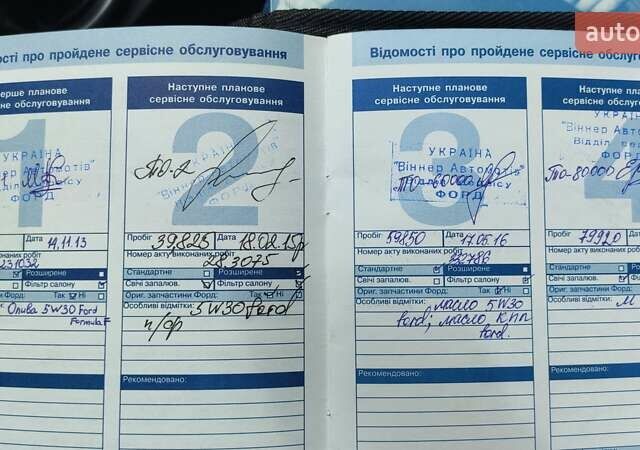 auto
Відомості про пройдене сервісне обслуговування
ерше планове
сне обслуговування
1
УКРАЇНА
Дата 14.11.13
виконаних робіт
231032
Розширене
Фільтр салону
Ford: Так Ні
Олива 5W30 Ford
Formula F
Наступне планове
сервісне обслуговування
2
ТО-2
Пробіг 39825 Дата 18.02.15р
Номер акту виконаних робіт
283075
Стандартне Розширене
Свічі запалюв. Фільтр салону
Ориг. запчастини Форд: Так Ні
Особливі відмітки: 5W30 Ford
п/фр
Рекомендовано:
Відомості про пройдене сервісне обслуговування
Наступне планове
сервісне обслуговування
3
УКРАЇНА
"Віннер Автомотів"
Відділ сервісу
ФОРД
ТО-60000
Пробіг 59850 Дата 17.05.16
Номер акту виконаних робіт
Стандартне Розширене
Свічі запалюв. Фільтр салону
Ориг. запчастини Форд: Так Ні
Особливі відмітки: масло 5W30
Ford; масло КПП
Ford.
Рекомендовано:
На
сервісне
4
УКРАЇНА
"Віннер Авто
ФОР
ТО-80000
Пробіг 79920
Номер акту вик
Стандартне
Свічі запалюв.
Ориг. запчасти
Особливі відміт
Рекомендован